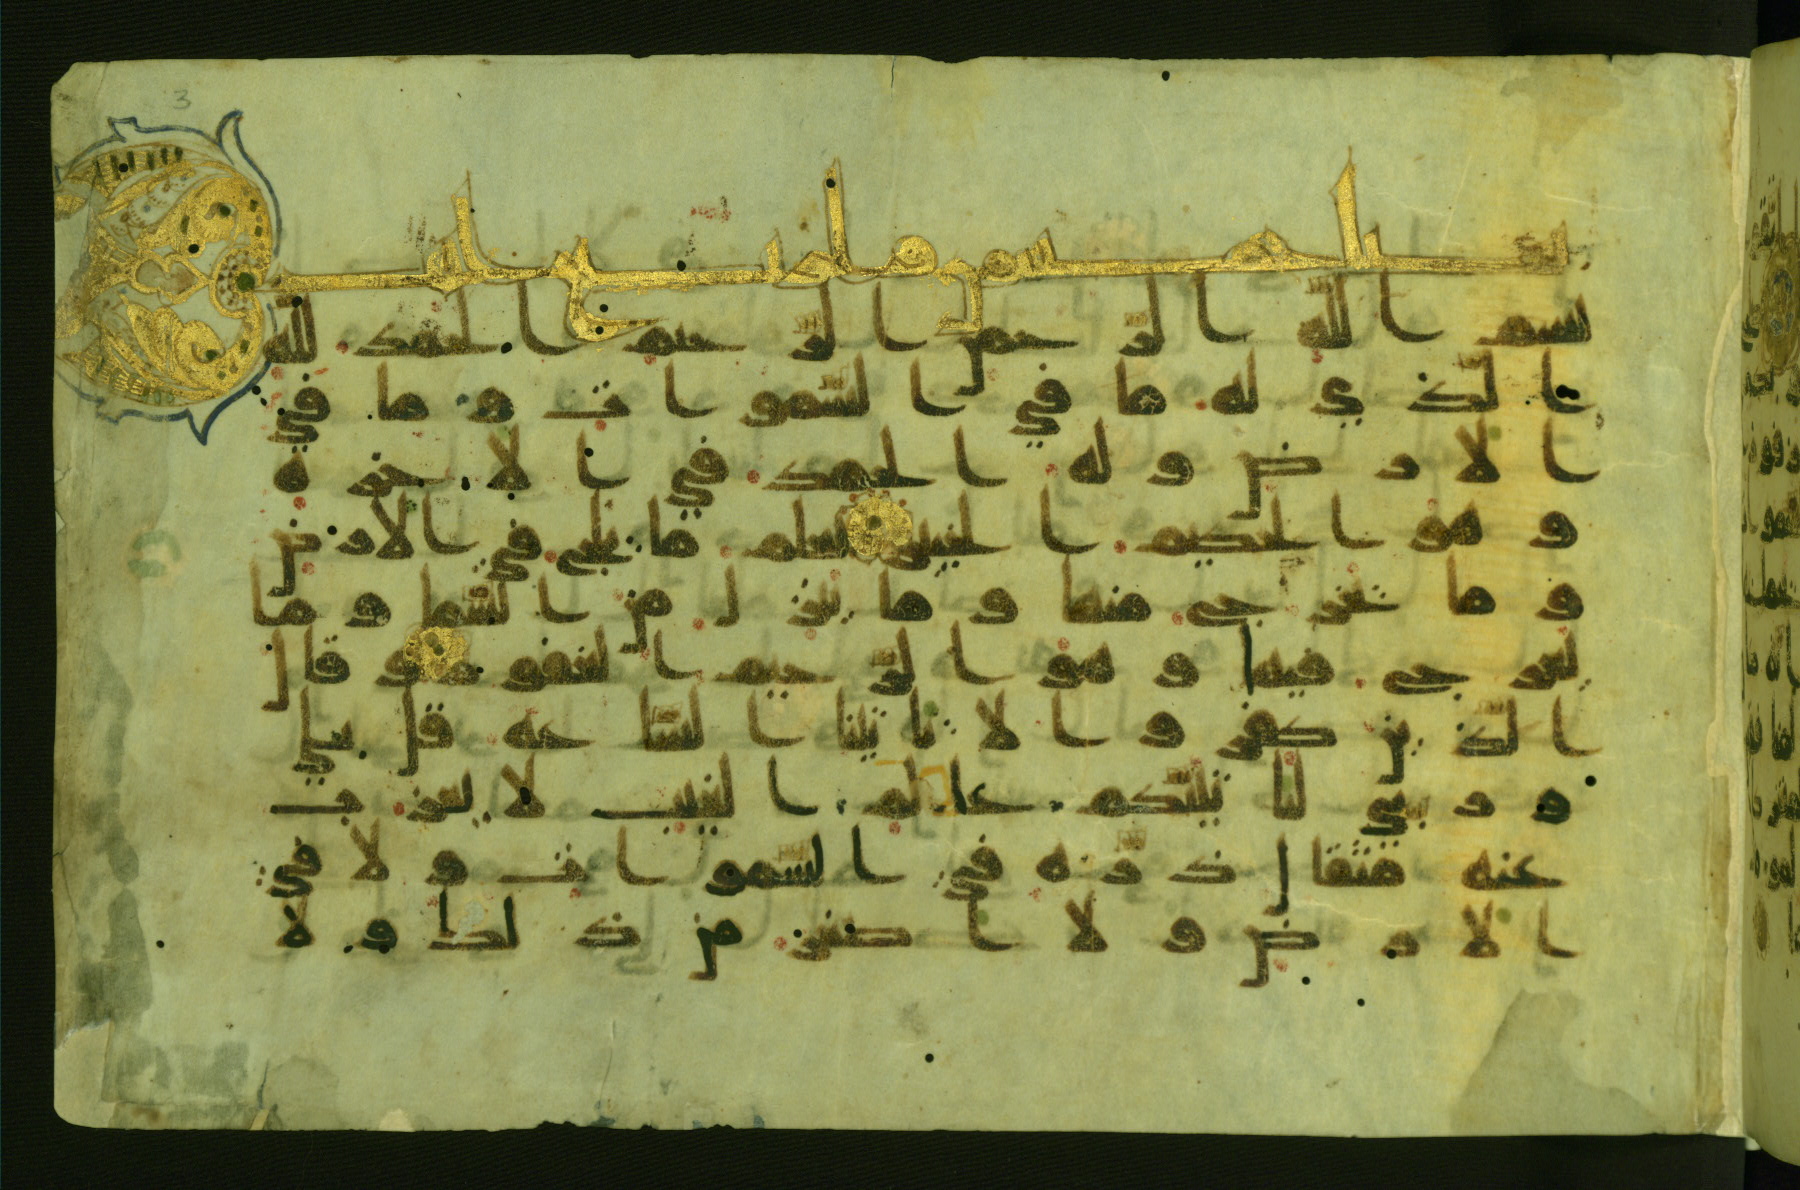 بسم الله الرحمن الرحيم الحمد لله
الذي له ما في السموات وما في
الارض وله الحمد في الاخرة
وهو الحكيم الخبير يعلم ما يلج في الارض
وما يخرج منها وما ينزل من السما وما
يعرج فيها وهو الرحيم الغفور وقال
الذين كفروا لا تاتينا الساعة قل بلي
وربي لتاتينكم عالم الغيب لا يعزب
عنه مثقال ذرة في السموات ولا في
الارض ولا اصغر من ذلك ولا